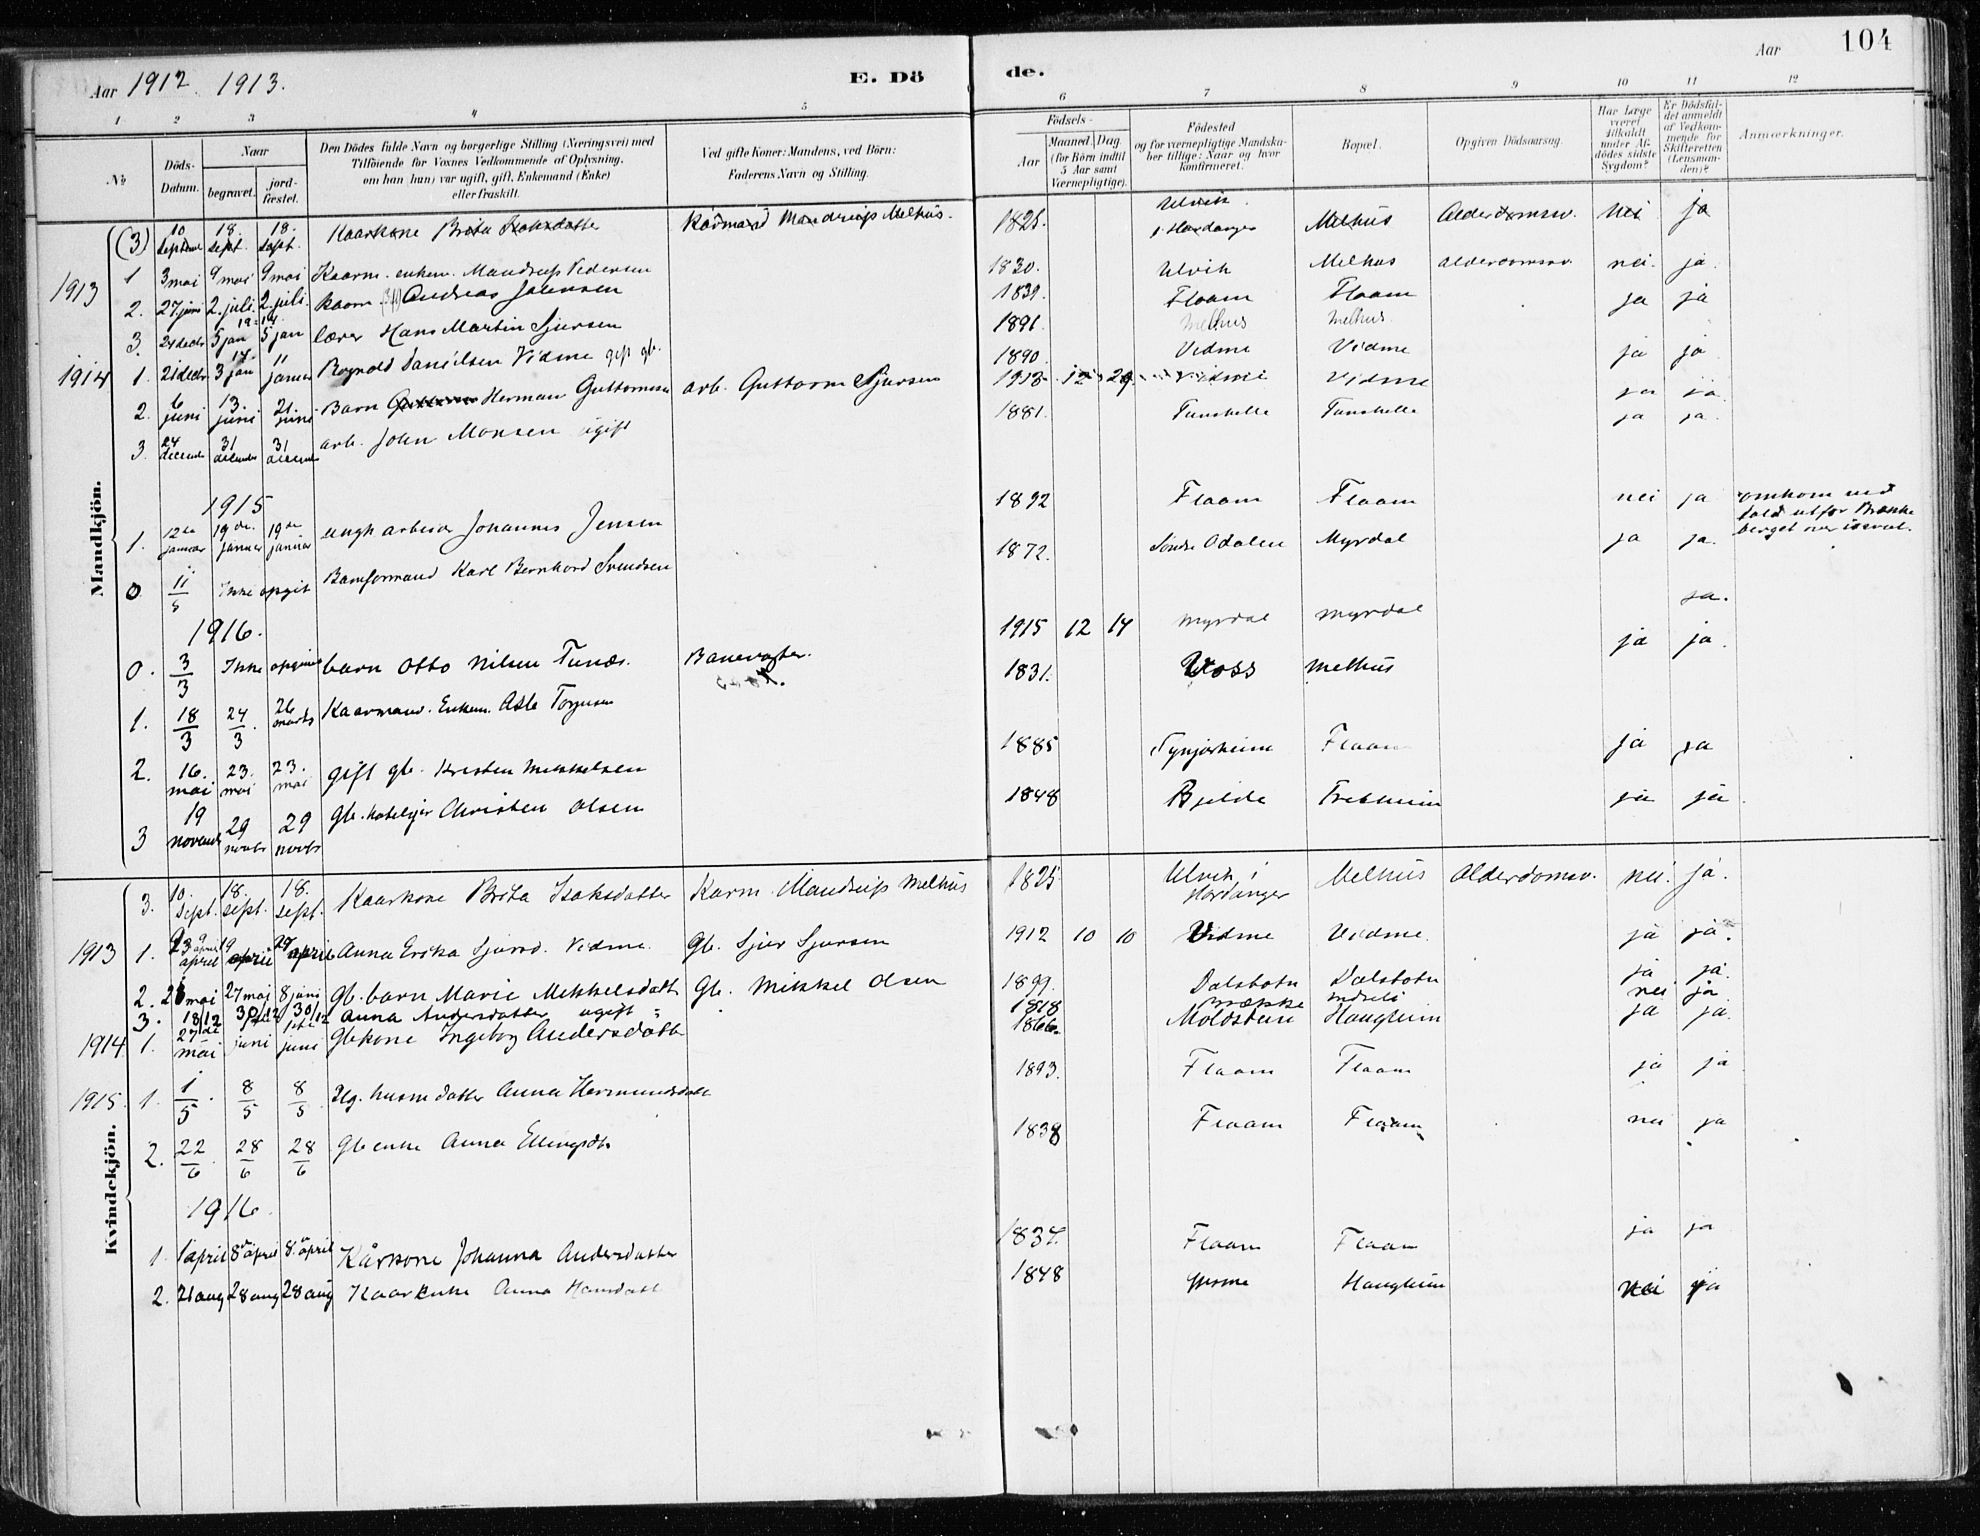 Aar 1912. 1913. E. Dö de. Aar 104
1 2 3 4 5 6 7 8 9 10 11 12
№ Döds-Datum. Naar begravet. jord-fæstet. Den Dödes fulde Navn og borgerlige Stilling (Næringsvei) med Tilföiende for Voxnes Vedkommende af Oplysning, om han (hun) var ugift, gift, Enkemand (Enke) eller fraskilt. Ved gifte Koner: Mandens, ved Börn: Faderens Navn og Stilling. Födsels- Aar Maaned. Dag. (for Börn indtil 5 Aar samt Værnepligtige). Födested og for værnepligtige Mandskaber tillige: Naar og hvor konfirmeret. Bopæl. Opgiven Dödsaarsag. Har Læge været tilkaldt under Afdödes sidste Sygdom? Er Dödsfaldet anmeldt af Vedkommende for Skifteretten (Lensmanden)? Anmærkninger.
Mandkjön.
(3) 10 18. sept. 18. sept. Kaarkone Brita Isaksdatter Kårmand Mandrup Melhus. 1825. Ulvik i Hardanger Melhus Alderdomssv. nei ja
1913 1 3 mai 9 mai 9 mai Kaarm. enkem. Mandrup Pedersen 1830. Ulvik Melhus alderdomssv. nei. ja.
2. 27 juni 2. juli 2. juli. kaarm. Andreas Johnsen 1839. Flaam Flaam ja ja
3. 24 decbr 5 jan 19 14 5 jan lærer Hans Martin Sjursen 1891. Melhus Melhus.
1914 1. 21 decbr 3 jan 14. 11 januar Rognald Danielsen Vidme gift gb. 1890. Vidme Vidme ja ja.
2. 6 juni 13. juni 21. juni Barn Herman Guttormsen arb. Guttorm Sjursen 1913. 12 29 Vidme Vidme ja ja.
3. 24 december 31 december 31 december arb. John Monsen ugift 1881. Tunshelle Tunshelle ja ja.
1915
1. 12te januar 19de. januar 19de januar ungk arbeider Johannes Jensen 1892 Flaam Flaam nei ja omkom ved fald utfor Brække berget over isvul.
0 11/5 Ikke opgit Banformand Karl Bernhard Svendsen 1872. Söndre Odalen Myrdal ja ja.
1916.
0. 3/3 Ikke opgivet barn Otto Nilsen Tunæs. Banevogter. 1915 12 14 Myrdal Myrdal ja.
1. 18/3 24/3. 26 marts Kaarmand. Enkem. Asle Torjusen 1831. Voss Melhus ja ja.
2. 16. mai 23. mai 23. mai gift gb. Kristen Mikkelsen 1885 Flaam ja ja
3 19 novembr 29 novbr 29 novbr Gb. hotelejer Christen Olsen 1848 Bjelde Fretheim ja ja.
Kvindekjön.
3. 10. sept. 18. sept. 18. sept. Kaarkone Brita Isaksdatter Karm. Mandrup Melhus 1825 Ulvik i Hardanger Melhus Alderdomssv. nei. ja.
1913 1. april 19 april april Anna Erika Sjursd. Vidme. Gb. Sjur Sjursen 1912 10 10 Vidme Vidme. ja ja.
2. 26 mai 27 maj 8 juni gb. barn Marie Mikkelsdatt Gb. Mikkel Olsen 1899. Dalsbotn Dalsbotn ja ja.
3. 18/12 30/12 30/12 Anna Andersdatter ugift 1818 Brække Indreli nei ja
1914 1. 27de mai 1ste juni 1ste juni Gbkone Ingeborg Andersdatter 1866. Moldsteine Haugheim ja ja.
1915. 1. 1/5. 8/5 8/5 Ug. husm datter Anna Hermundsdatt 1893. Flaam Flaam ja ja
2. 22/6. 28/6 28/6 Gb enke Anna Ellingsdtr 1838 Flaam Flaam nei ja
1916.
1. 1 april 8de april 8de april Kårkone Johanna Andersdatter 1837. Flaam Flaam ja ja
2. 21 aug 28 aug 28 aug Kaarenke Anna Hansdatt 1848 Haugheim nei ja